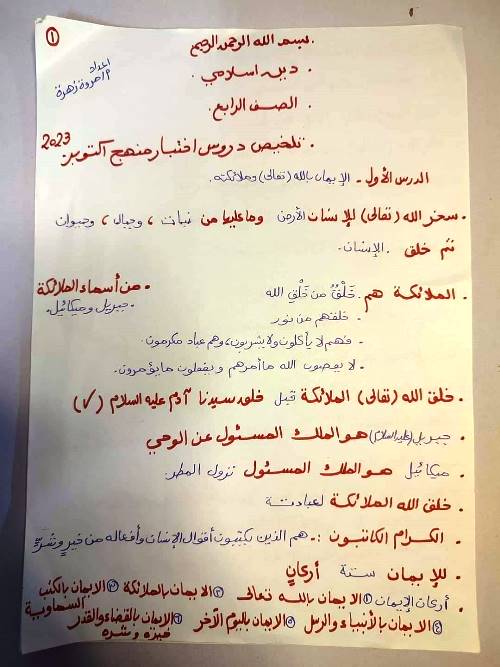 ١
بسم الله الرحمن الرحيم
اعداد
م/مروة زهرة
دين اسلامي .
الصف الرابع.
تلخيص دروس اختبار منهج أكتوبر 2023
الدرس الأول - الإيمان بالله (تعالى) وملائكته.
سخر الله (تعالى) للإنسان الأرض وما عليها من نبات ، وجبال ، وحيوان
ثم خلق الإنسان.
الملائكة هم . خَلْقٌ من خَلْقِ الله
- خلقهم من نور
- فهم لا يأكلون ولا يشربون، وهم عباد مكرمون.
- لا يعصون الله ما أمرهم و يفعلون ما يؤمرون.
من أسماء الملائكة
جبريل وميكائيل.
خلق الله (تعالى) الملائكة قبل خلق سيدنا آدم عليه السلام (✓)
جبريل (عليه السلام) هو الملك المسئول عن الوحي
ميكائيل هو الملك المسئول نزول المطر.
خلق الله الملائكة لعبادته
الكرام الكاتبون :- هم الذين يكتبون أقوال الإنسان وأفعاله من خيرٍ وشرٍّ
للإيمان ستة أركان
أركان الإيمان ① الايمان بالله تعالى ② الايمان بالملائكة ③ الايمان بالكتب السماوية
④ الايمان بالأنبياء والرسل ⑤ الايمان باليوم الآخر ⑥ الايمان بالقضاء والقدر
خيره وشره